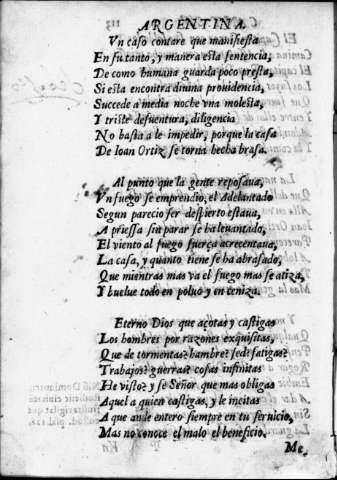 ARGENTINA.
Vn caso contare que manifiesta
En su tanto, y manera esta sentencia,
De como humana guarda poco presta,
Si esta encontra diuina prouidencia,
Succede a media noche vna molesta,
Y triste desuentura, diligencia
No basta a le impedir, porque la casa
De Ioan Ortiz se torna hecha brasa.
Al punto que la gente reposaua,
Vn fuego se emprendio, el Adelantado
Segun parecio ser despierto estaua,
A priessa sin parar se ha leuantado,
El viento al fuego fuerça acrecentaua,
La casa, y quanto tiene se ha abrasado,
Que mientras mas va el fuego mas se atiza,
Y buelue todo en poluo y en ceniza.
Eterno Dios que açotas y castigas
Los hombres por razones exquisitas,
Que de tormentas? hambre? sed? fatigas?
Trabajos? guerras? cosas infinitas
He visto? y se Señor que mas obligas
Aquel a quien castigas, y le incitas
A que ande entero siempre en tu seruicio,
Mas no conoce el malo el beneficio.
Me